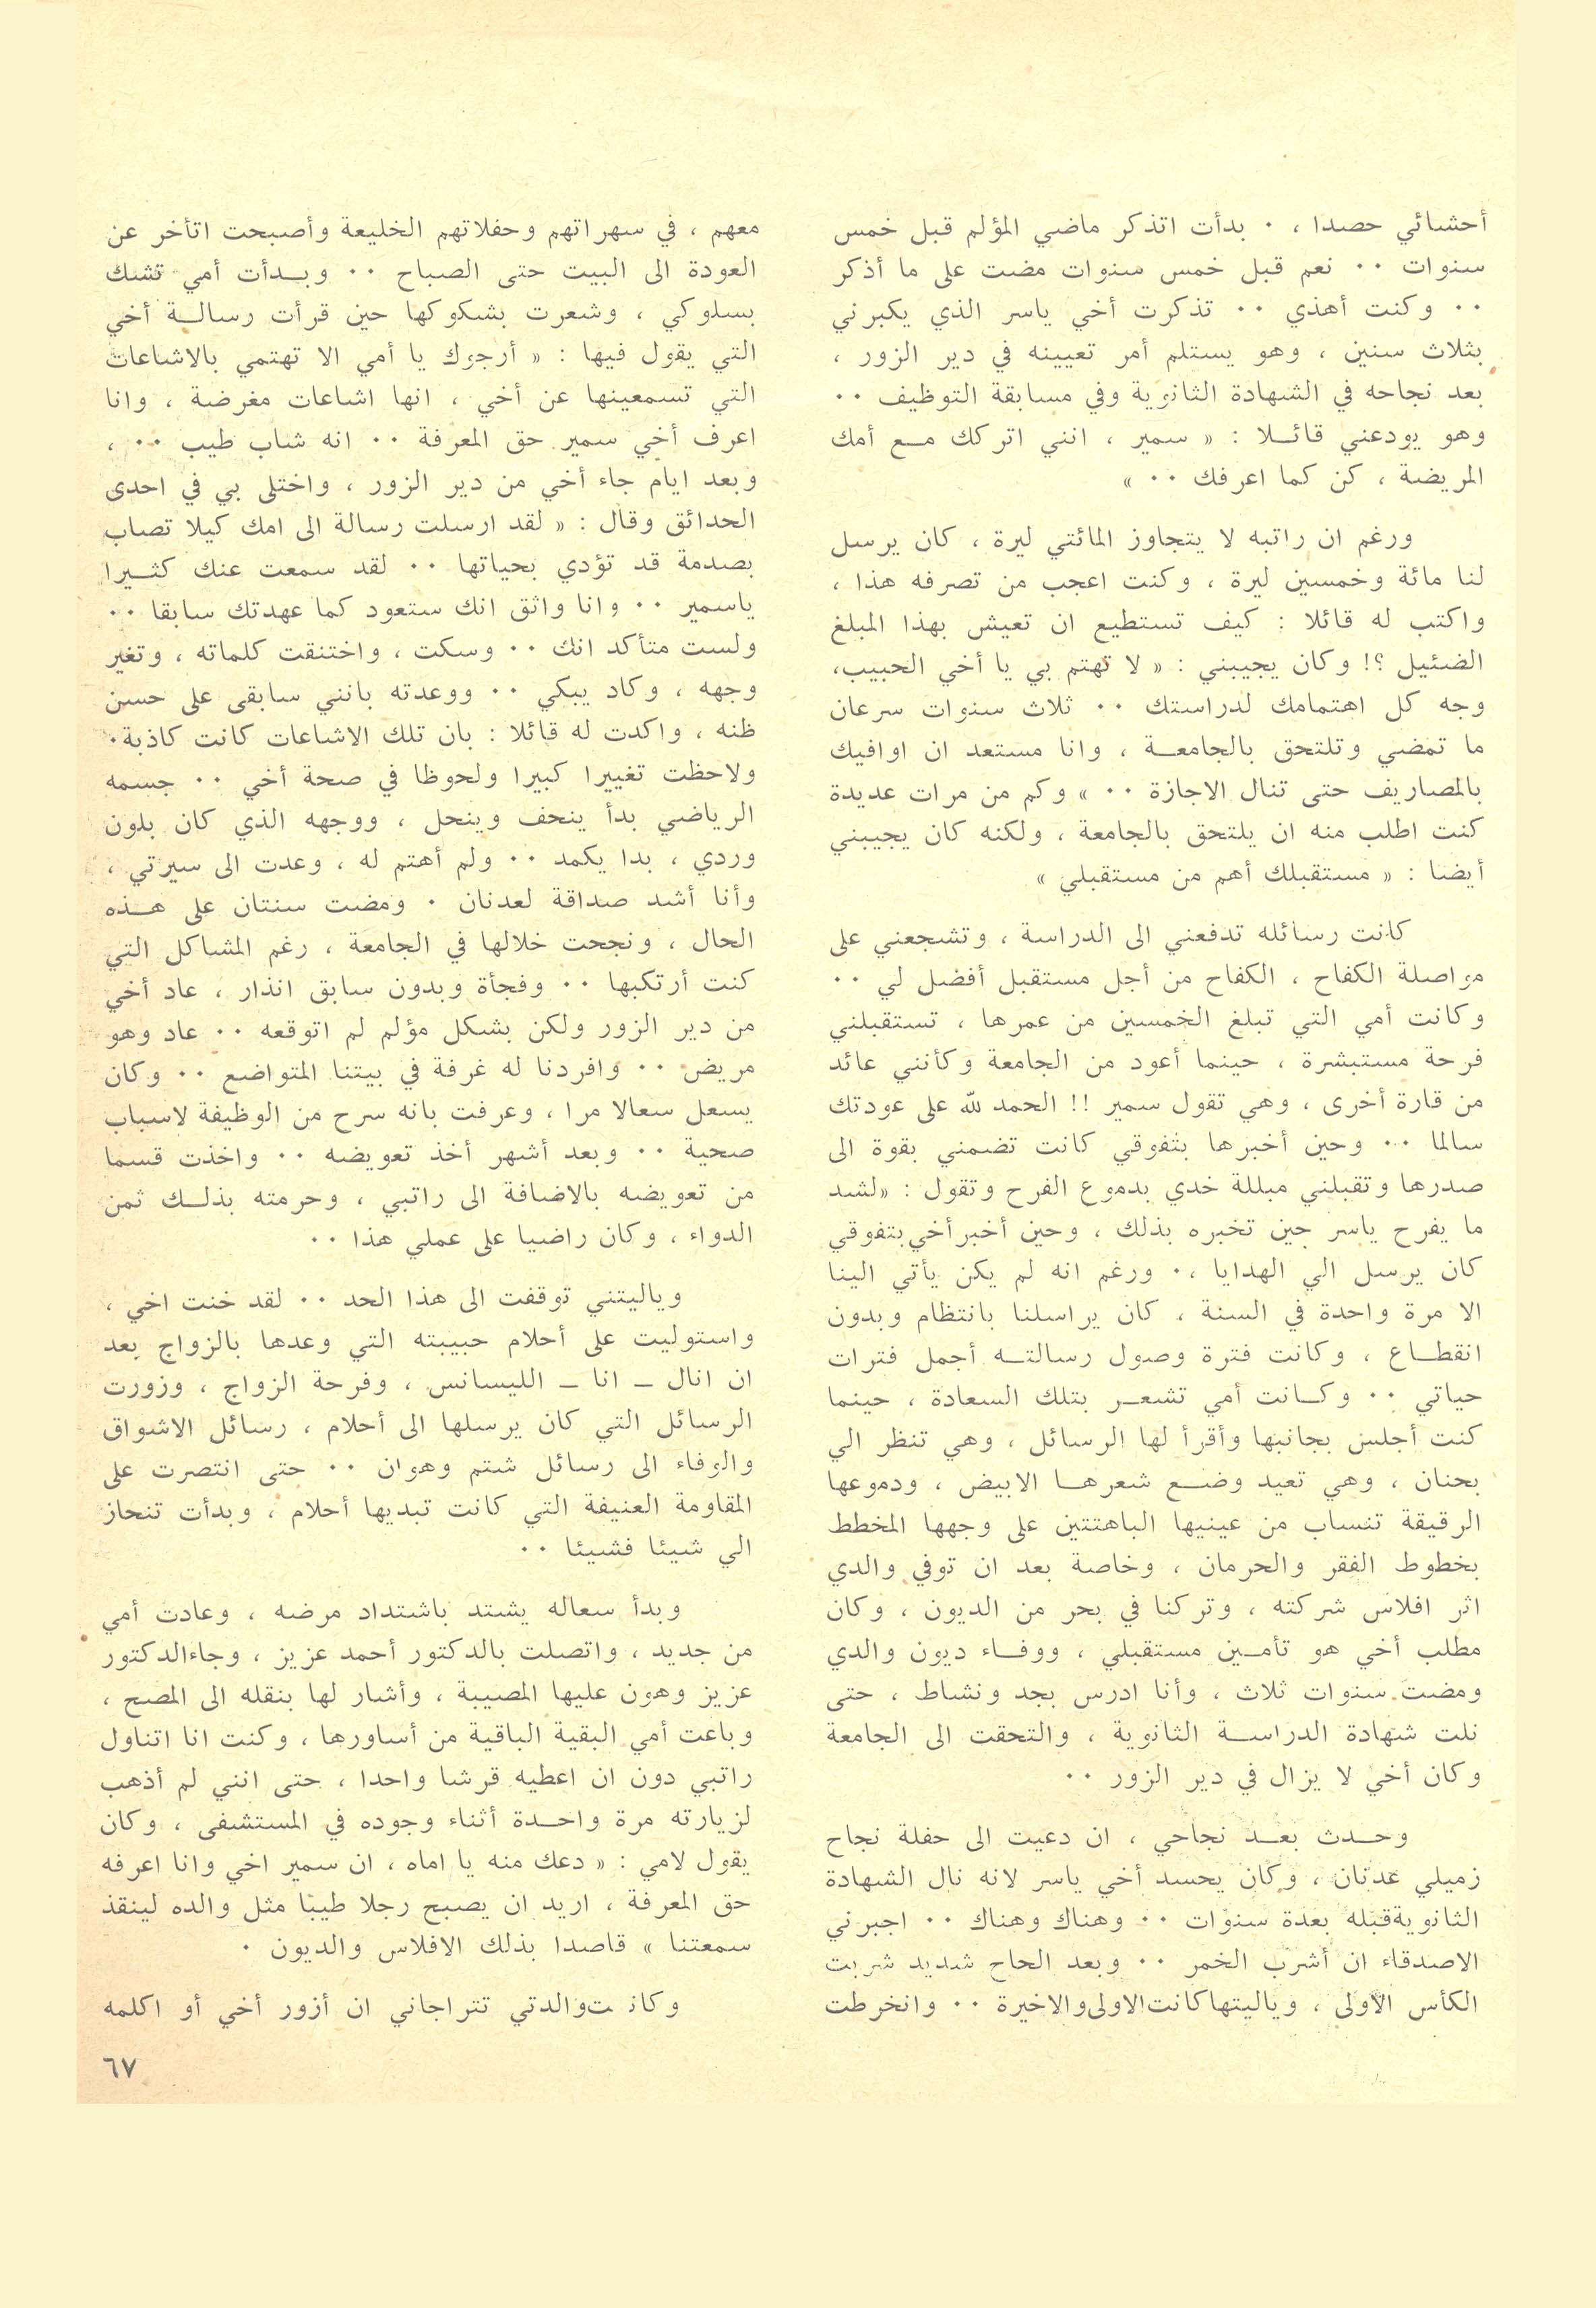 أحشائي حصدا ، ٠ بدأت اتذكر ماضي المؤلم قبل خمس
سنوات ٠٠ نعم قبل خمس سنوات مضت على ما أذكر
٠٠ وكنت أهذي ٠٠ تذكرت أخي ياسر الذي يكبرني
بثلاث سنين ، وهو يستلم أمر تعيينه في دير الزور ،
بعد نجاحه في الشهادة الثانوية وفي مسابقة التوظيف ٠٠
وهو يودعني قائلا : « سمير ، انني اتركك مع أمك
المريضة ، كن كما اعرفك ٠٠ »
ورغم ان راتبه لا يتجاوز المائتي ليرة ، كان يرسل
لنا مائة وخمسين ليرة ، وكنت اعجب من تصرفه هذا ،
واكتب له قائلا : كيف تستطيع ان تعيش بهذا المبلغ
الضئيل ؟! وكان يجيبني : « لا تهتم بي يا أخي الحبيب،
وجه كل اهتمامك لدراستك ٠٠ ثلاث سنوات سرعان
ما تمضي وتلتحق بالجامعة ، وانا مستعد ان اوافيك
بالمصاريف حتى تنال الاجازة ٠٠ » وكم من مرات عديدة
كنت اطلب منه ان يلتحق بالجامعة ، ولكنه كان يجيبني
أيضا : « مستقبلك أهم من مستقبلي »
كانت رسائله تدفعني الى الدراسة ، وتشجعني على
مواصلة الكفاح ، الكفاح من أجل مستقبل أفضل لي ٠٠
وكانت أمي التي تبلغ الخمسين من عمرها ، تستقبلني
فرحة مستبشرة ، حينما أعود من الجامعة وكأنني عائد
من قارة أخرى ، وهي تقول سمير !! الحمد لله على عودتك
سالما ٠٠ وحين أخبرها بتفوقي كانت تضمني بقوة الى
صدرها وتقبلني مبللة خدي بدموع الفرح وتقول : «لشد
ما يفرح ياسر حين تخبره بذلك ، وحين أخبر أخي بتفوقي
كان يرسل الي الهدايا ،٠ ورغم انه لم يكن يأتي الينا
الا مرة واحدة في السنة ، كان يراسلنا بانتظام وبدون
انقطاع ، وكانت فترة وصول رسالته أجمل فترات
حياتي ٠٠ وكانت أمي تشعر بتلك السعادة ، حينما
كنت أجلس بجانبها وأقرأ لها الرسائل ، وهي تنظر الي
بحنان ، وهي تعيد وضع شعرها الابيض ، ودموعها
الرقيقة تنساب من عينيها الباهتتين على وجهها المخطط
بخطوط الفقر والحرمان ، وخاصة بعد ان توفي والدي
اثر افلاس شركته ، وتركنا في بحر من الديون ، وكان
مطلب أخي هو تأمين مستقبلي ، ووفاء ديون والدي
ومضت سنوات ثلاث ، وأنا ادرس بجد ونشاط ، حتى
نلت شهادة الدراسة الثانوية ، والتحقت الى الجامعة
وكان أخي لا يزال في دير الزور ٠٠
وحدث بعد نجاحي ، ان دعيت الى حفلة نجاح
زميلي عدنان ، وكان يحسد أخي ياسر لانه نال الشهادة
الثانوية قبله بعدة سنوات ٠٠ وهناك وهناك ٠٠ اجبرني
الاصدقاء ان أشرب الخمر ٠٠ وبعد الحاح شديد شربت
الكأس الاولى ، وياليتها كانت الاولى والاخيرة ٠٠ وانخرطت
معهم ، في سهراتهم وحفلاتهم الخليعة وأصبحت اتأخر عن
العودة الى البيت حتى الصباح ٠٠ وبدأت أمي تشك
بسلوكي ، وشعرت بشكوكها حين قرأت رسالة أخي
التي يقول فيها : « أرجوك يا أمي الا تهتمي بالاشاعات
التي تسمعينها عن أخي ، انها اشاعات مغرضة ، وانا
اعرف أخي سمير حق المعرفة ٠٠ انه شاب طيب ٠٠ ،
وبعد ايام جاء أخي من دير الزور ، واختلى بي في احدى
الحدائق وقال : « لقد ارسلت رسالة الى امك كيلا تصاب
بصدمة قد تؤدي بحياتها ٠٠ لقد سمعت عنك كثيرا
ياسمير ٠٠ وانا واثق انك ستعود كما عهدتك سابقا ٠٠
ولست متأكد انك ٠٠ وسكت ، واختنقت كلماته ، وتغير
وجهه ، وكاد يبكي ٠٠ ووعدته بانني سابقى على حسن
ظنه ، واكدت له قائلا : بان تلك الاشاعات كانت كاذبة٠
ولاحظت تغييرا كبيرا ولحوظا في صحة أخي ٠٠ جسمه
الرياضي بدأ ينحف وينحل ، ووجهه الذي كان بلون
وردي ، بدا يكمد ٠٠ ولم أهتم له ، وعدت الى سيرتي ،
وأنا أشد صداقة لعدنان ٠ ومضت سنتان على هذه
الحال ، ونجحت خلالها في الجامعة ، رغم المشاكل التي
كنت أرتكبها ٠٠ وفجأة وبدون سابق انذار ، عاد أخي
من دير الزور ولكن بشكل مؤلم لم اتوقعه ٠٠ عاد وهو
مريض ٠٠ وافردنا له غرفة في بيتنا المتواضع ٠٠ وكان
يسعل سعالا مرا ، وعرفت بانه سرح من الوظيفة لاسباب
صحية ٠٠ وبعد أشهر أخذ تعويضه ٠٠ واخذت قسما
من تعويضه بالاضافة الى راتبي ، وحرمته بذلك ثمن
الدواء ، وكان راضيا على عملي هذا ٠٠
وياليتني توقفت الى هذا الحد ٠٠ لقد خنت اخي ،
واستوليت على أحلام حبيبته التي وعدها بالزواج بعد
ان انال ـ انا ـ الليسانس ، وفرحة الزواج ، وزورت
الرسائل التي كان يرسلها الى أحلام ، رسائل الاشواق
والوفاء الى رسائل شتم وهوان ٠٠ حتى انتصرت على
المقاومة العنيفة التي كانت تبديها أحلام ، وبدأت تنحاز
الي شيئا فشيئا ٠٠
وبدأ سعاله يشتد باشتداد مرضه ، وعادت أمي
من جديد ، واتصلت بالدكتور أحمد عزيز ، وجاء الدكتور
عزيز وهون عليها المصيبة ، وأشار لها بنقله الى المصح ،
وباعت أمي البقية الباقية من أساورها ، وكنت انا اتناول
راتبي دون ان اعطيه قرشا واحدا ، حتى انني لم أذهب
لزيارته مرة واحدة أثناء وجوده في المستشفى ، وكان
يقول لامي : « دعك منه يا اماه ، ان سمير اخي وانا اعرفه
حق المعرفة ، اريد ان يصبح رجلا طيبا مثل والده لينقذ
سمعتنا » قاصدا بذلك الافلاس والديون ٠
وكانت والدتي تتراجاني ان أزور أخي أو اكلمه
٦٧